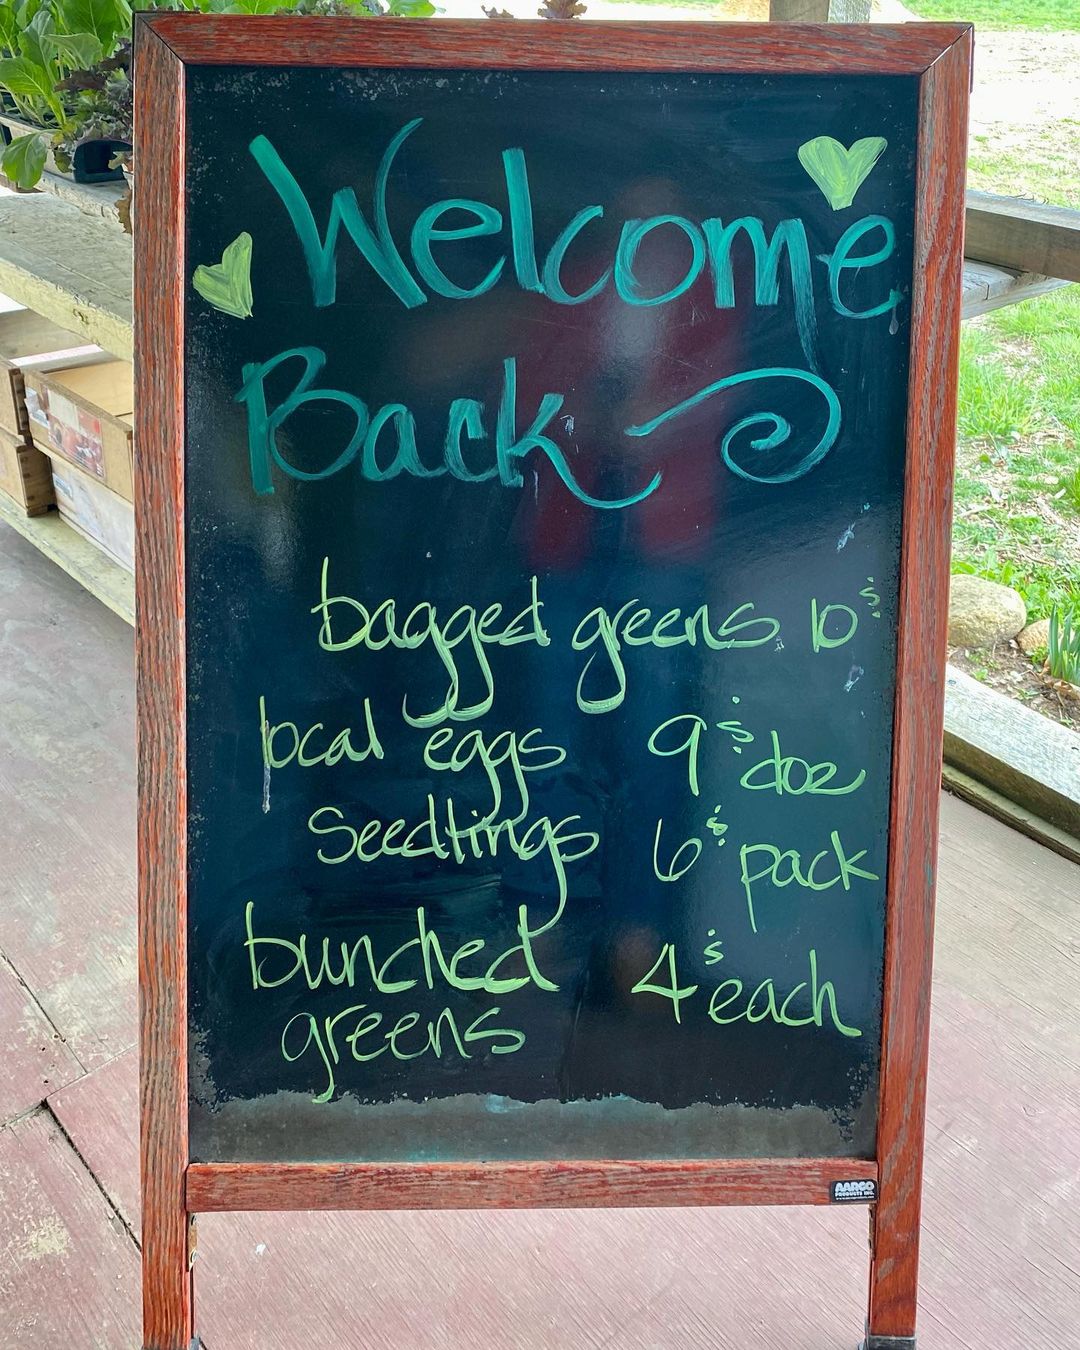 Welcome
Back
bagged greens 10$
local eggs 9$ doz
Seedlings 6$ pack
bunched 4$ each
greens
AARCO
PRODUCTS INC.